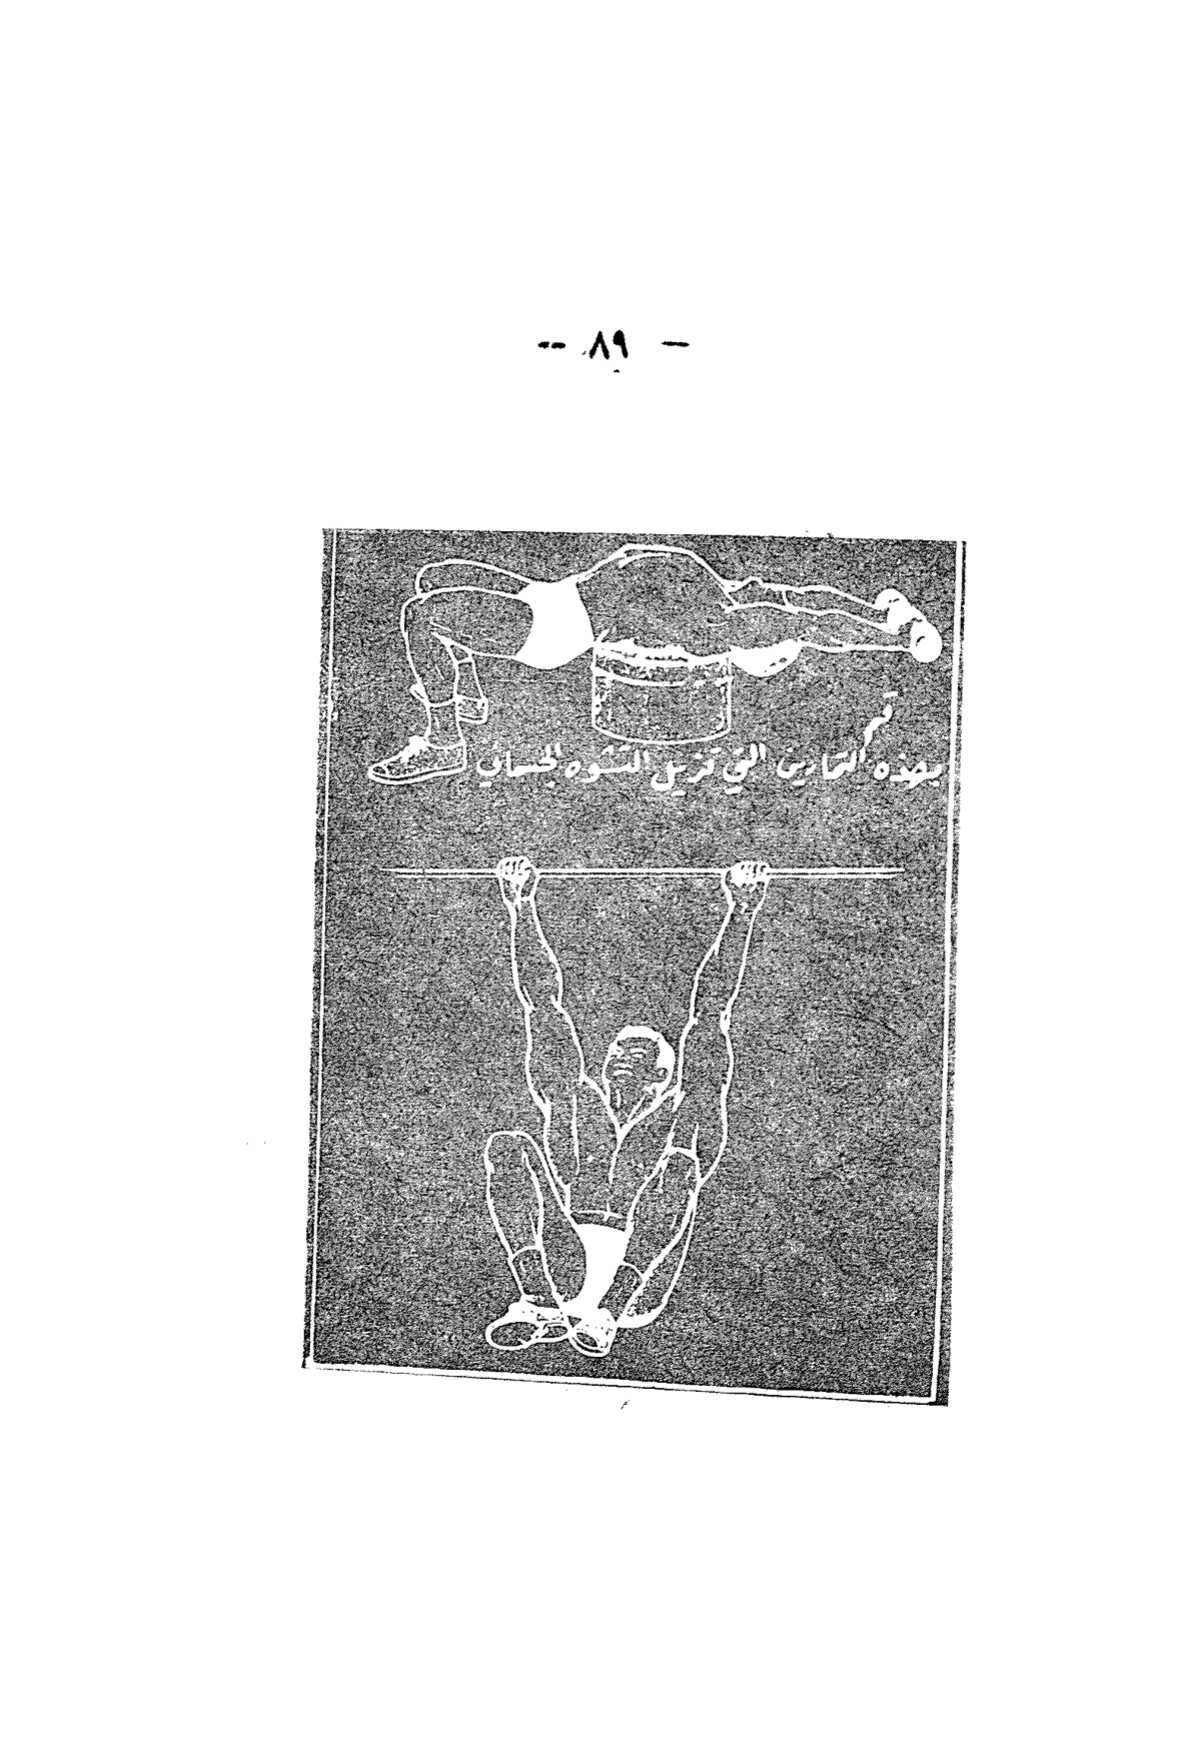 -- ٨٩ —
قم
بهذه التمارين التي تزيل التشوه الجسماني